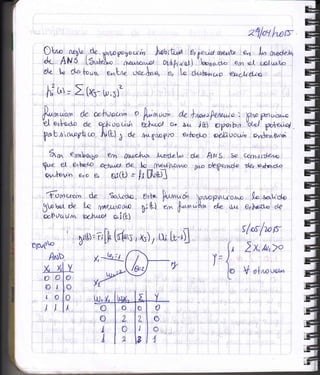 29/04/2015
Otra regla de propagación habitual especialmente en los modelos
de ANS (Sistema neuronal Artificial) basado en el calculo
de la distancia entre vectores es la distancia euclidea
hi²(t) = Σ(xj - wij)²
Función de activación o función de transferencia: proporciona
el estado de activación actual en su apartir del potencial
postsináptico hi(t) y de su propio estado activación anterior
Sin embargo en muchos modelos de ANS se considera
que el estado actual de la neurona no depende de estado
anterior
Función de Salida, Esta función proporciona la salida
global de la neurona yi(t) en función de su estado de
activación actual ai(t)
5/05/2015
Ejemplo
AND
X₁ X₂ Y
0 0 0
0 1 0
1 0 0
1 1 1
X₁ W₁=1
X₂ W₂=2
θ=2
y
Y = { 1 Σ Xi Wi >θ
0 ∀ otro caso
W₁X₁ W₂X₂ Σ Y
0 0 0 0
0 2 2 0
1 0 1 0
1 2 3 1